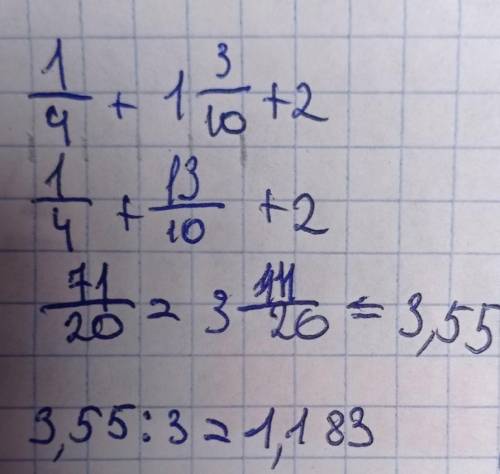 1/4 + 1 3/10 + 2
1/4 + 13/10 + 2
71/20 = 3 11/20 = 3,55
3,55 : 3 = 1,183